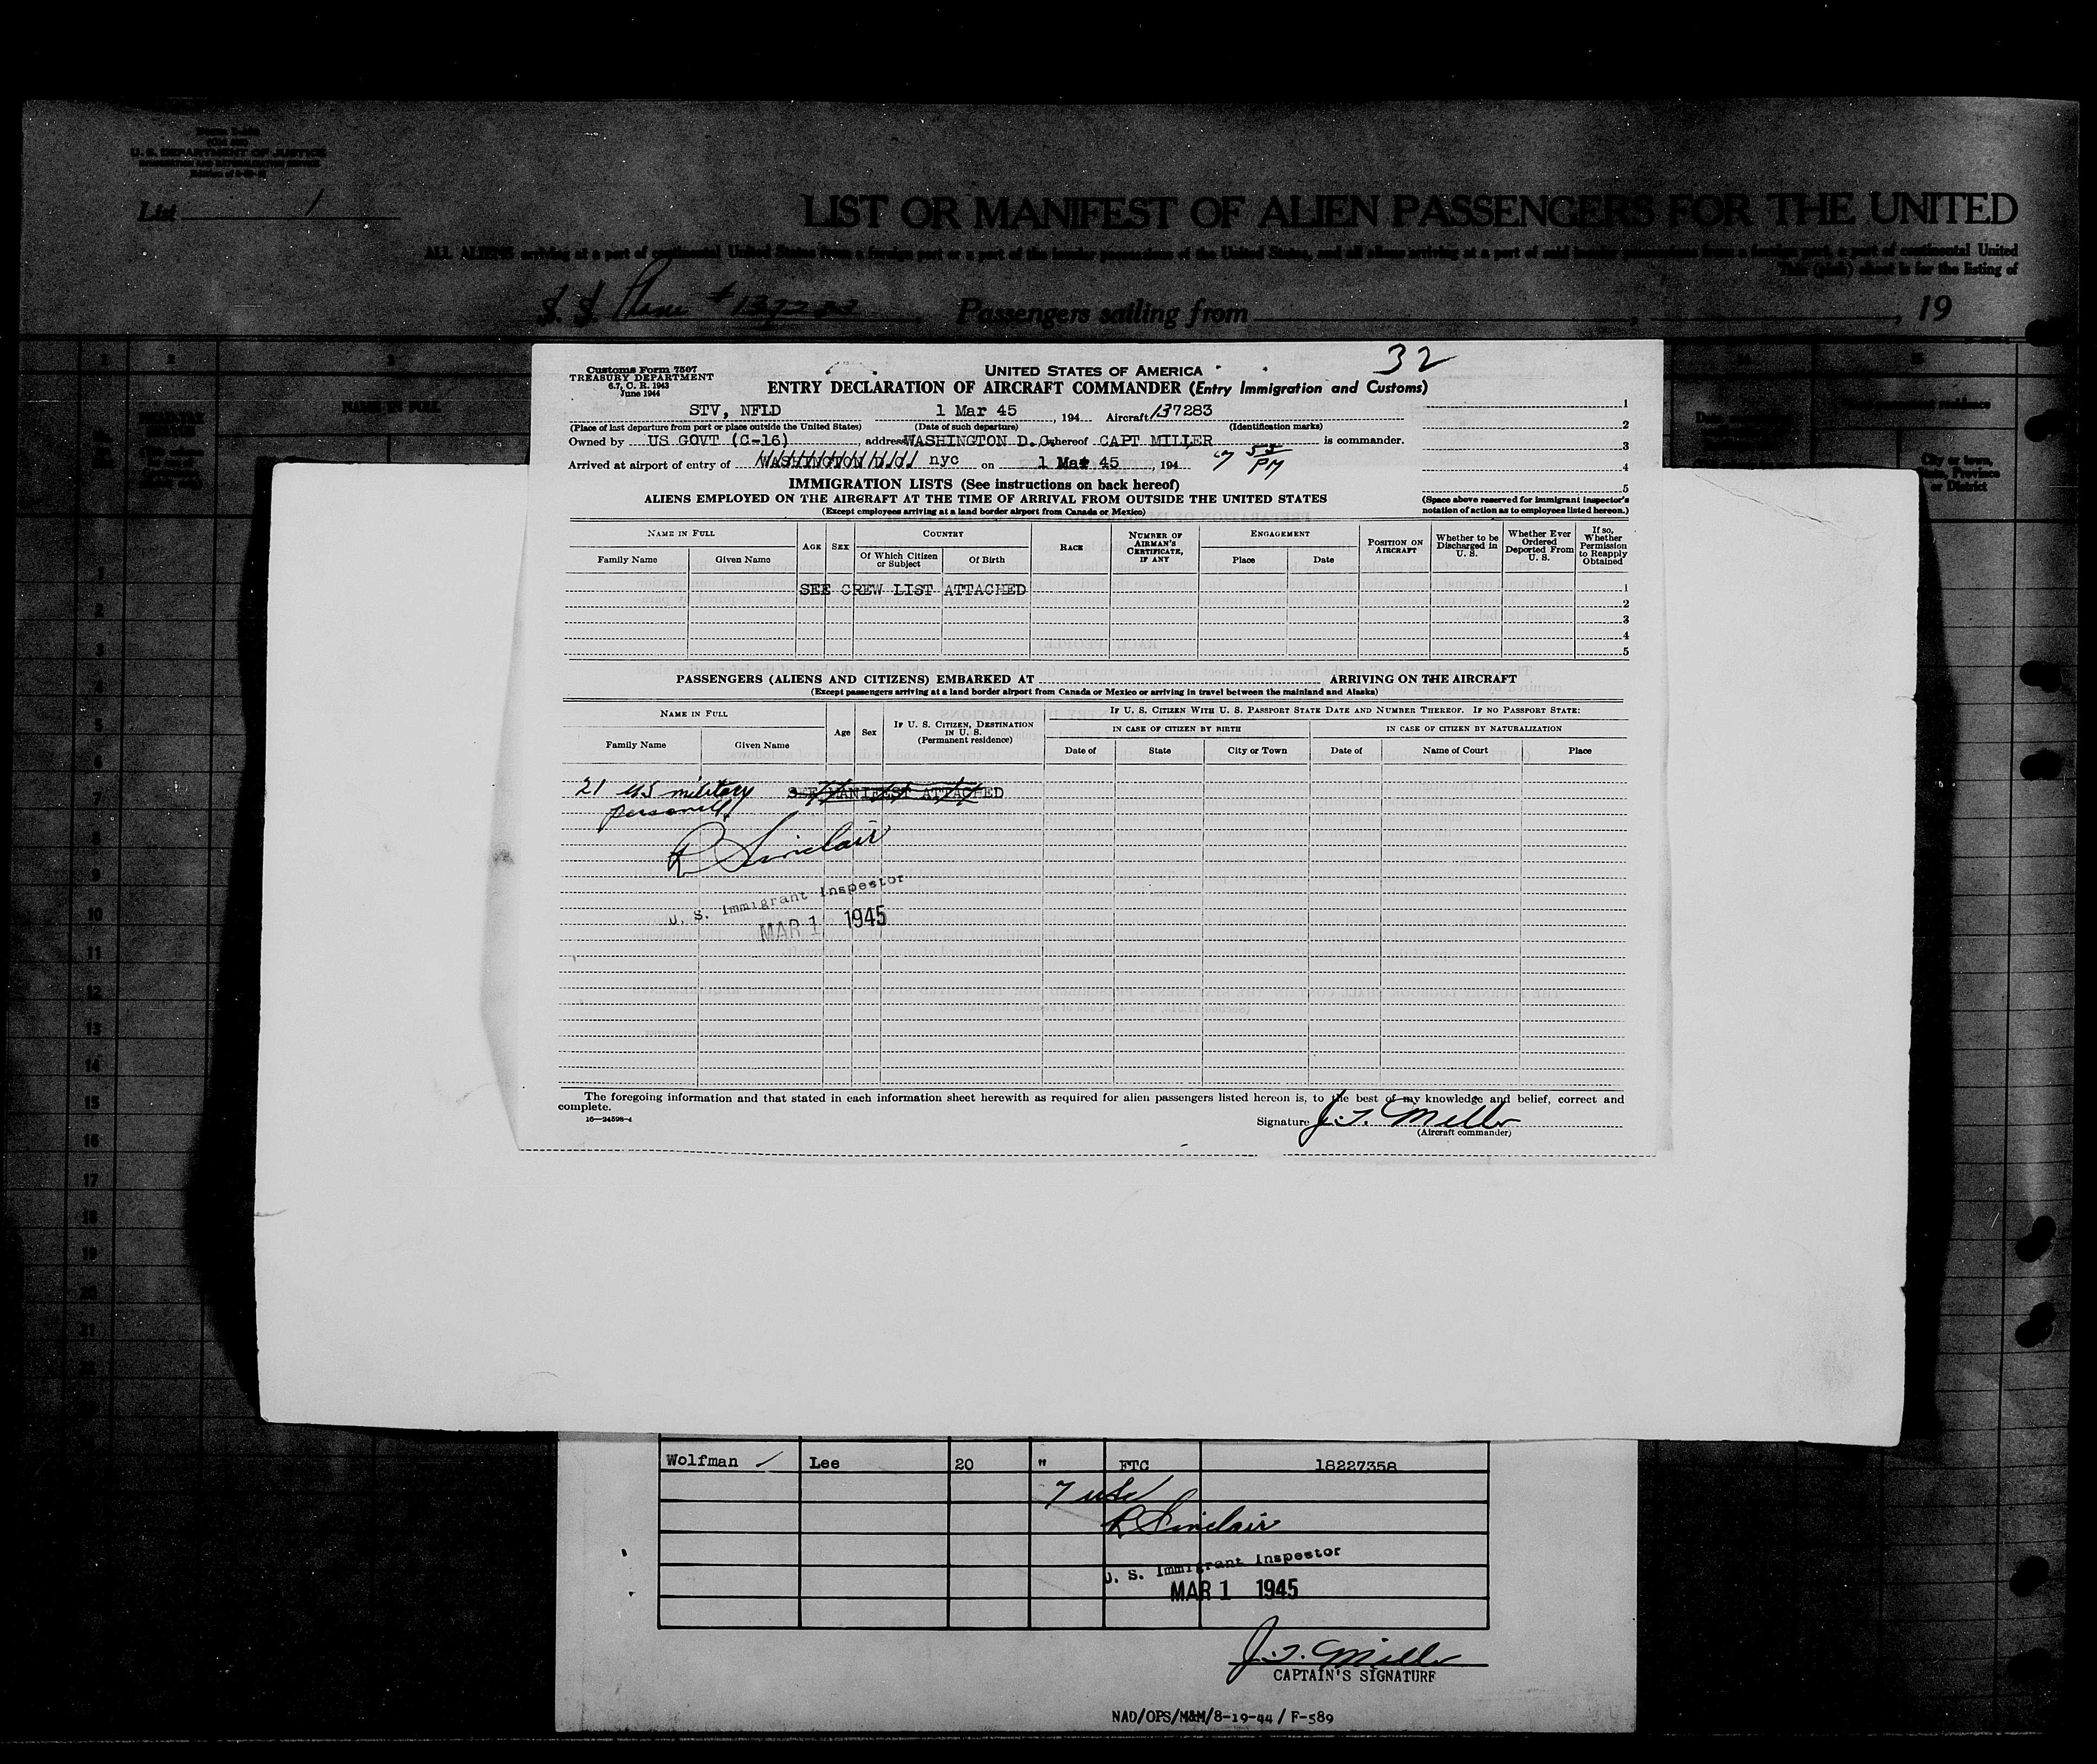 U. S. DEPARTMENT OF JUSTICE
List 1
LIST OR MANIFEST OF ALIEN PASSENGERS FOR THE UNITED
ALL ALIENS arriving at a port of continental United States from a foreign port or a port of the insular possessions of the United States, and all aliens arriving at a port of said insular possessions from a foreign port, a port of continental United
This (pink) sheet is for the listing of
S. S. Plane # Passengers sailing from , , 19
1 2 3
NAME IN FULL
City or town,
State, Province
or District
32
Customs Form 7507
TREASURY DEPARTMENT
6.7, C. R. 1943
June 1944
UNITED STATES OF AMERICA
ENTRY DECLARATION OF AIRCRAFT COMMANDER (Entry Immigration and Customs)
STV, NFLD 1 Mar 45 , 194 Aircraft 137283
(Place of last departure from port or place outside the United States) (Date of such departure) (Identification marks)
Owned by US GOVT (C-16) , address WASHINGTON D.C. whereof CAPT MILLER is commander.
Arrived at airport of entry of WASHINGTON nyc on 1 Mar 45 , 194 7 55 PM
1
2
3
4
5
(Space above reserved for immigrant inspector's
notation of action as to employees listed hereon.)
IMMIGRATION LISTS (See instructions on back hereof)
ALIENS EMPLOYED ON THE AIRCRAFT AT THE TIME OF ARRIVAL FROM OUTSIDE THE UNITED STATES
(Except employees arriving at a land border airport from Canada or Mexico)
NAME IN FULL AGE SEX COUNTRY RACE NUMBER OF AIRMAN'S CERTIFICATE, IF ANY ENGAGEMENT POSITION ON AIRCRAFT Whether to be Discharged in U. S. Whether Ever Ordered Deported From U. S. If so, Whether Permission to Reapply Obtained
Family Name Given Name Of Which Citizen or Subject Of Birth Place Date
SEE CREW LIST ATTACHED 1
2
3
4
5
PASSENGERS (ALIENS AND CITIZENS) EMBARKED AT ARRIVING ON THE AIRCRAFT
(Except passengers arriving at a land border airport from Canada or Mexico or arriving in travel between the mainland and Alaska)
NAME IN FULL Age Sex IF U. S. CITIZEN, DESTINATION IN U. S. (Permanent residence) IF U. S. CITIZEN WITH U. S. PASSPORT STATE DATE AND NUMBER THEREOF. IF NO PASSPORT STATE:
IN CASE OF CITIZEN BY BIRTH IN CASE OF CITIZEN BY NATURALIZATION
Family Name Given Name Date of State City or Town Date of Name of Court Place
21 US military SEE MANIFEST ATTACHED
personell
R Sinclair
U. S. Immigrant Inspector
MAR 1 1945
The foregoing information and that stated in each information sheet herewith as required for alien passengers listed hereon is, to the best of my knowledge and belief, correct and
complete.
16—24598-1
Signature J. T. Miller
(Aircraft commander)
1
2
3
4
5
6
7
8
9
10
11
12
13
14
15
16
17
18
19
20
21
Wolfman Lee 20 " FTC 18227358
7 USC
R Sinclair
U. S. Immigrant Inspector
MAR 1 1945
J. T. Miller
CAPTAIN'S SIGNATURE
NAD/OPS/M&M/8-19-44 / F-589